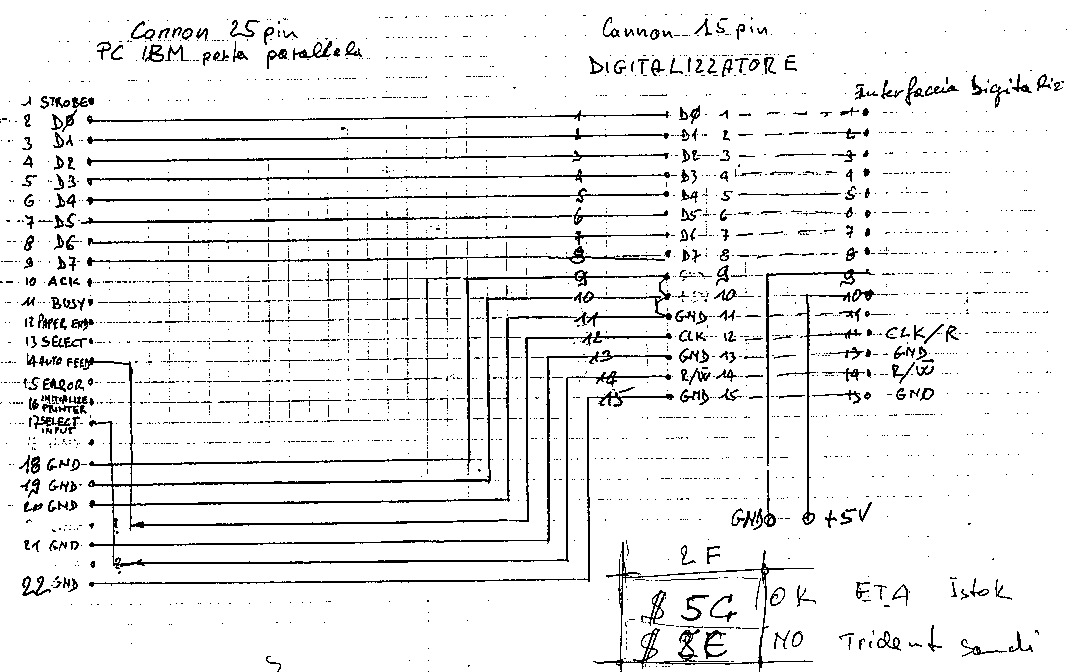 Cannon 25 pin
PC IBM porta parallela
Cannon 15 pin
DIGITALIZZATORE
Interfaccia
1 STROBE
2 DØ 1 DØ 1 1
3 D1 2 D1 2 2
4 D2 3 D2 3 3
5 D3 4 D3 4 4
6 D4 5 D4 5 5
7 D5 6 D5 6 6
8 D6 7 D6 7 7
9 D7 8 D7 8 8
10 ACK 9 9 9
11 BUSY 10 10 10
12 PAPER END 11 GND 11 11
13 SELECT 12 CLK 12 CLK/R
14 AUTO FEED 13 GND 13 13 GND
15 ERROR 14 R/W̅ 14 14 R/W̅
16 INITIALIZE PRINTER 15 GND 15 15 GND
17 SELECT INPUT
18 GND
19 GND
20 GND
21 GND
22 GND
GND +5V
2F
$ 5C OK ETA Istok
$ 8E NO Trident